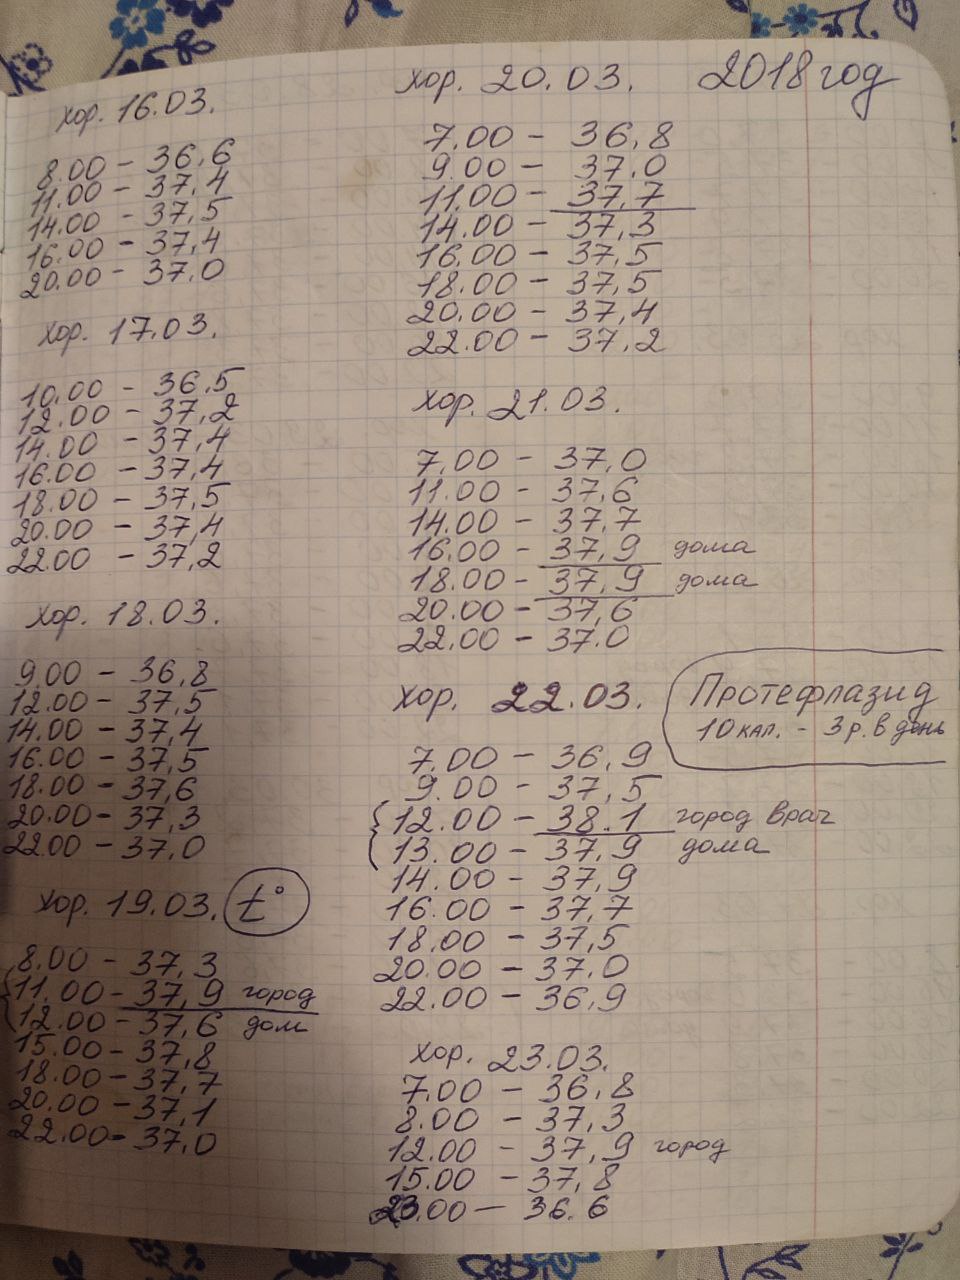 хор. 16.03.
8.00 – 36,6
11.00 – 37,4
14.00 – 37,5
16.00 – 37,4
20.00 – 37,0
хор. 17.03.
10.00 – 36,5
12.00 – 37,2
14.00 – 37,4
16.00 – 37,4
18.00 – 37,5
20.00 – 37,4
22.00 – 37,2
хор. 18.03.
9.00 – 36,8
12.00 – 37,5
14.00 – 37,4
16.00 – 37,5
18.00 – 37,6
20.00 – 37,3
22.00 – 37,0
хор. 19.03. t°
8.00 – 37,3
11.00 – 37,9 город
12.00 – 37,6 дом
15.00 – 37,8
18.00 – 37,7
20.00 – 37,1
22.00 – 37,0
хор. 20.03. 2018 год
7.00 – 36,8
9.00 – 37,0
11.00 – 37,7
14.00 – 37,3
16.00 – 37,5
18.00 – 37,5
20.00 – 37,4
22.00 – 37,2
хор. 21.03.
7.00 – 37,0
11.00 – 37,6
14.00 – 37,7
16.00 – 37,9 дома
18.00 – 37,9 дома
20.00 – 37,6
22.00 – 37.0
хор. 22.03.
Протефлазид
10 кап. – 3 р. в день
7.00 – 36,9
9.00 – 37,5
12.00 – 38.1 город врач
13.00 – 37,9 дома
14.00 – 37,9
16.00 – 37,7
18.00 – 37,5
20.00 – 37.0
22.00 – 36,9
хор. 23.03.
7.00 – 36,8
8.00 – 37,3
12.00 – 37,9 город
15.00 – 37,8
23.00 – 36.6